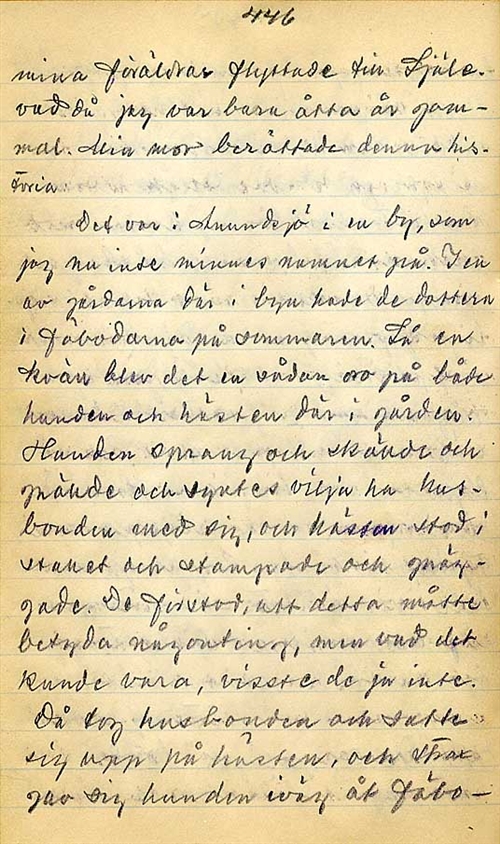 446
mina föräldrar flyttade till Själe-
vad då jag var bara åtta år gam-
mal. Min mor berättade denna his-
toria.
Det var i Anundsjö i en by, som
jag nu inte minnes namnet på. I en
av gårdarna där i byn hade de dottern
i fäbodarna på sommaren. Så en
kväll blev det en sådan oro på både
hunden och hästen där i gården.
Hunden sprang och skällde och
gnällde och syntes vilja ha hus-
bonden med sig, och hästen stod i
stallet och stampade och gnäg-
gade. De förstod, att detta måtte
betyda någonting, men vad det
kunde vara, visste de ju inte.
Då tog husbonden och satte
sig upp på hästen, och strax
gav sig hunden iväg åt fäbo-